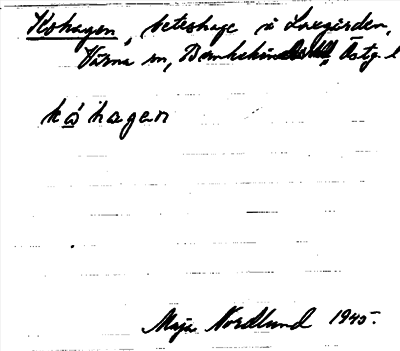 Kohagen, beteshage i Laxgården,
Värna sn, Bankekinds hd, Östg. l
kó̱hagen
Maja Nordlund 1945.